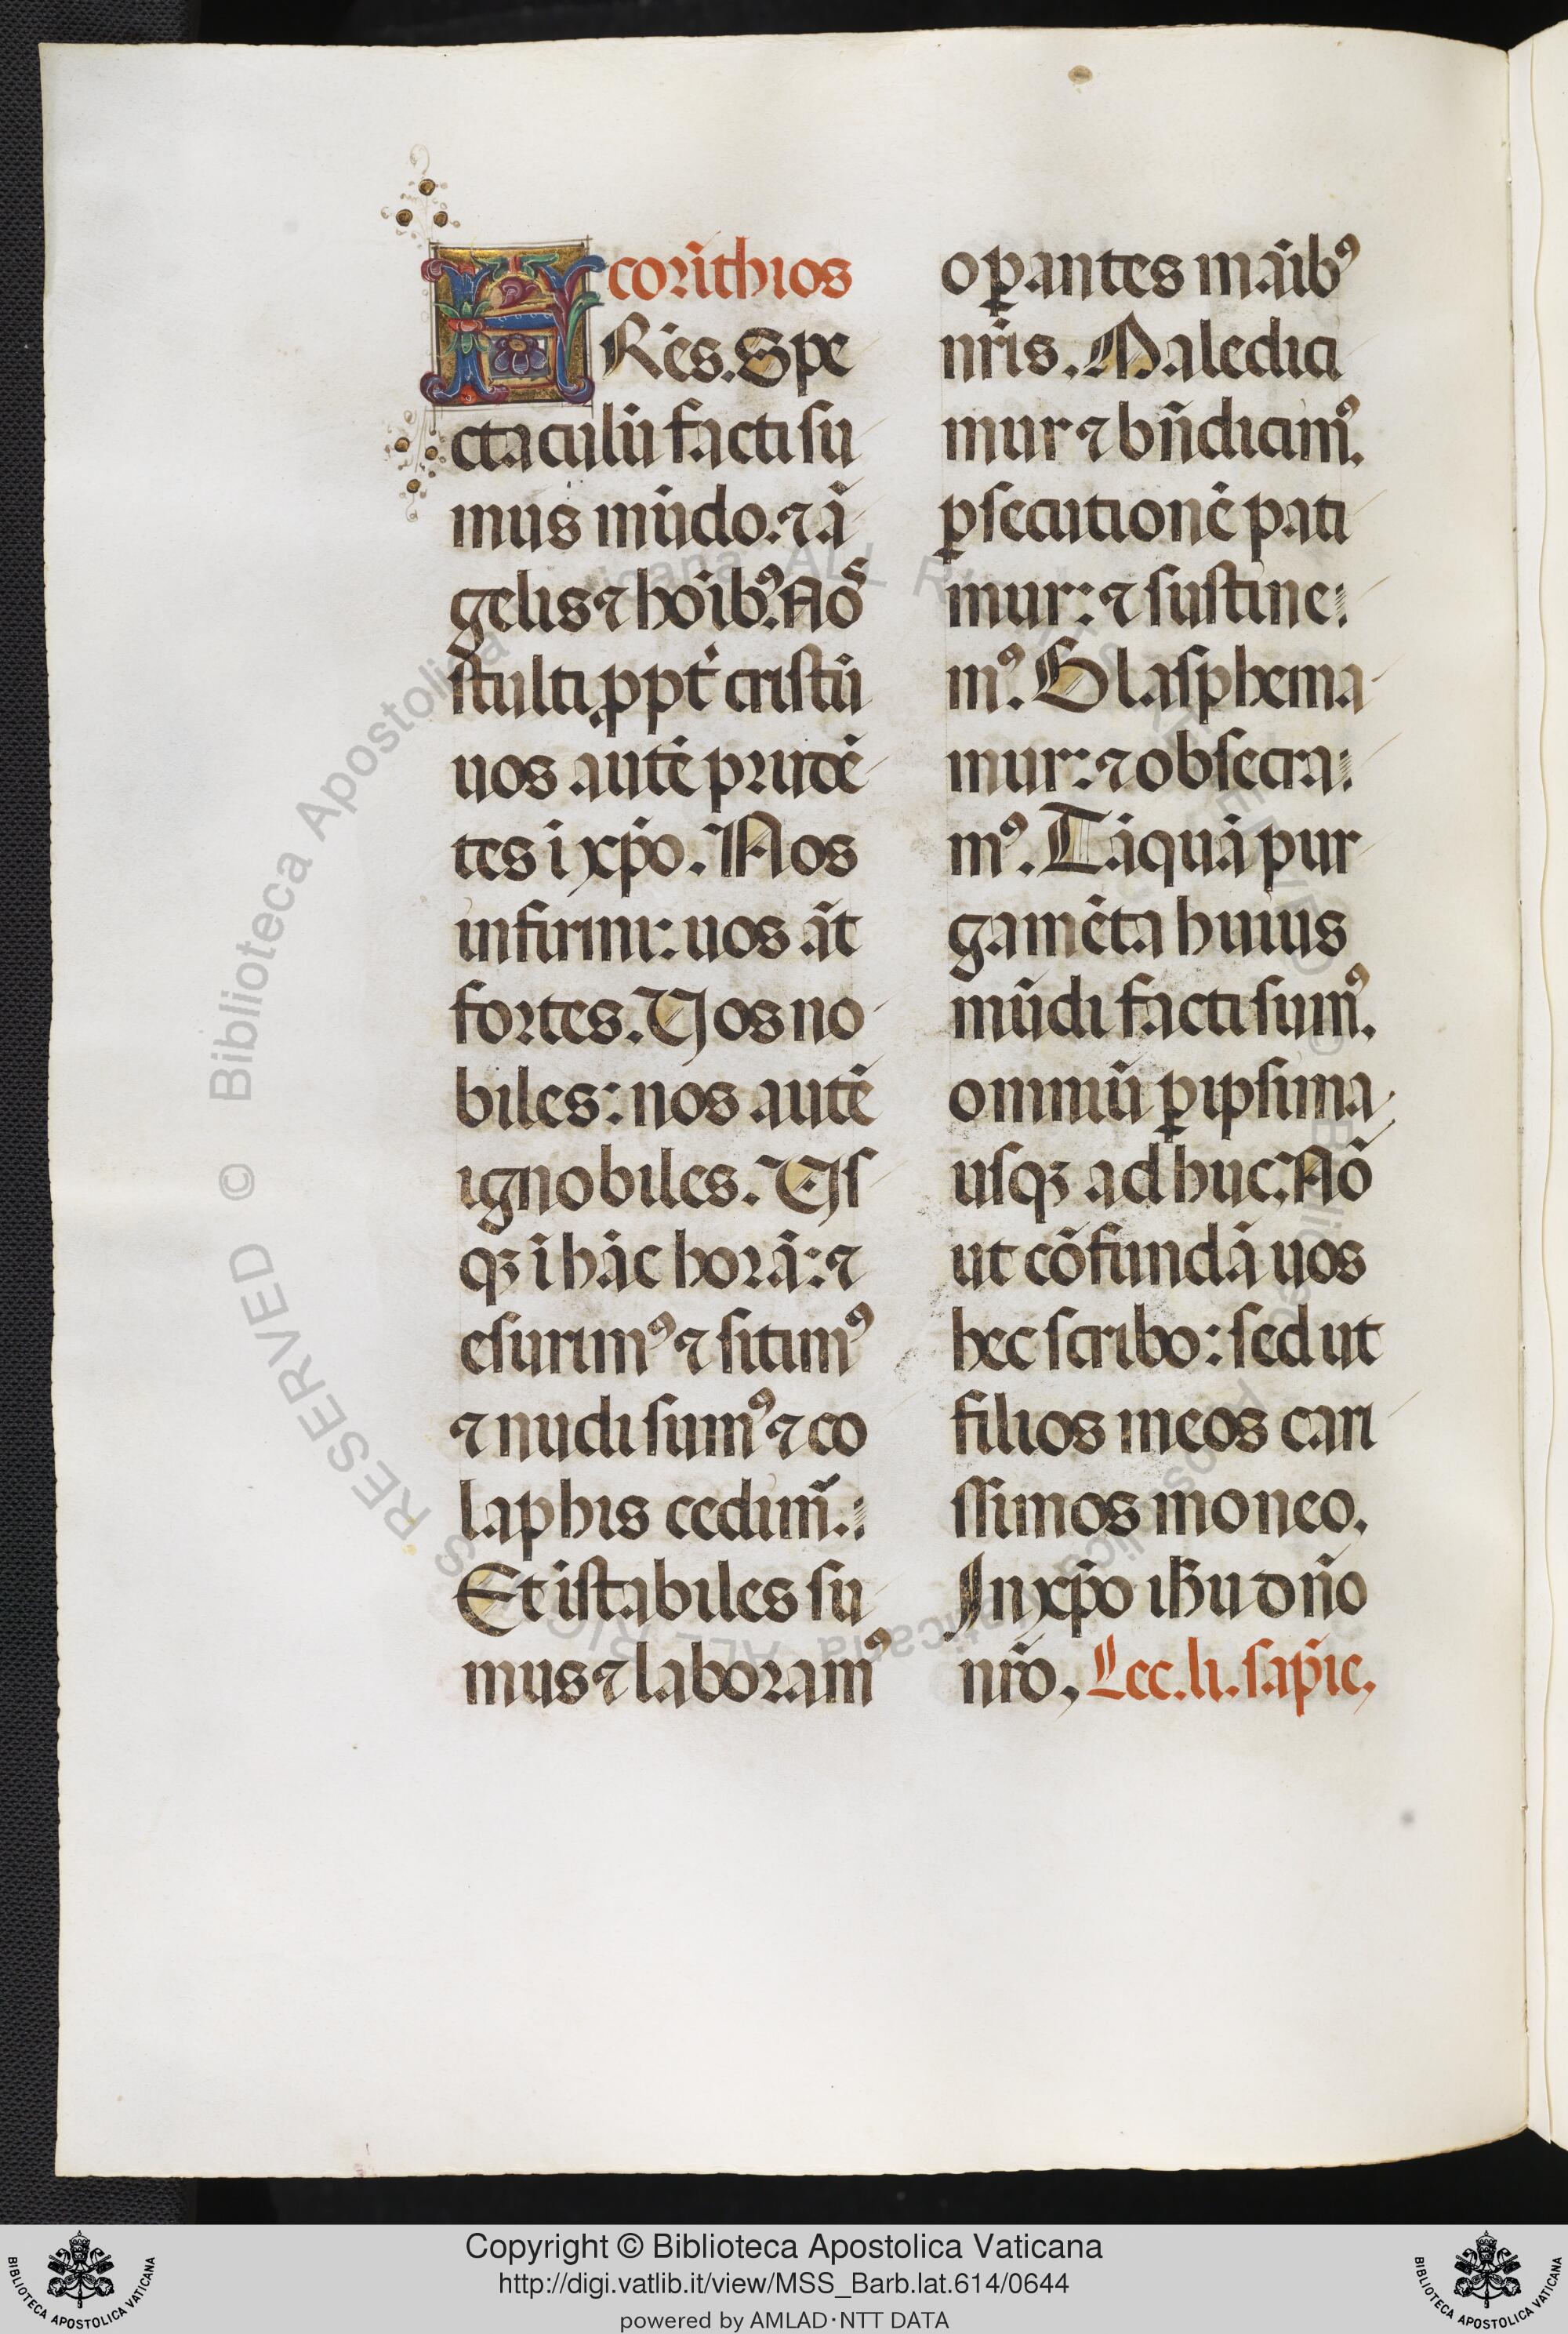 corĩthios
FRẽs. Spe
ctaculũ facti su
mus mũdo. ⁊ ã
gelis ⁊ hoĩbꝰ. Noˢ
stulti ꝓpt̃ cristũ
uos autẽ prudẽ
tes ĩ xp̃o. Nos
infirmi: uos aũt
fortes. Vos no
biles: nos autẽ
ignobiles. Vs
qꝫ ĩ hãc horã: ⁊
esurimꝰ ⁊ sitimꝰ
⁊ nudi sumꝰ ⁊ co
laphis cedim̃.
Et ĩstabiles su
mus ⁊ laboramꝰ
oꝑantes mãibꝰ
nr̃is. Maledici
mur ⁊ bñdicimꝰ.
ꝑsecutionẽ pati
mur: ⁊ sustine
mꝰ. Blasphema
mur: ⁊ obsecra
mꝰ. Tãquã pur
gamẽta huius
mũdi facti sumꝰ.
omniũ ꝑipsima
usqꝫ adhuc. Nõ
ut cõfundã uos
hec scribo: sed ut
filios meos cari
ssimos moneo.
In xp̃o ih̃u dño
nr̃o, Lec. li. sap̃ie,
© Biblioteca Apostolica Vaticana ALL RIGHTS RESERVED
Copyright © Biblioteca Apostolica Vaticana
http://digi.vatlib.it/view/MSS_Barb.lat.614/0644
powered by AMLAD·NTT DATA
BIBLIOTECA APOSTOLICA VATICANA
BIBLIOTECA APOSTOLICA VATICANA